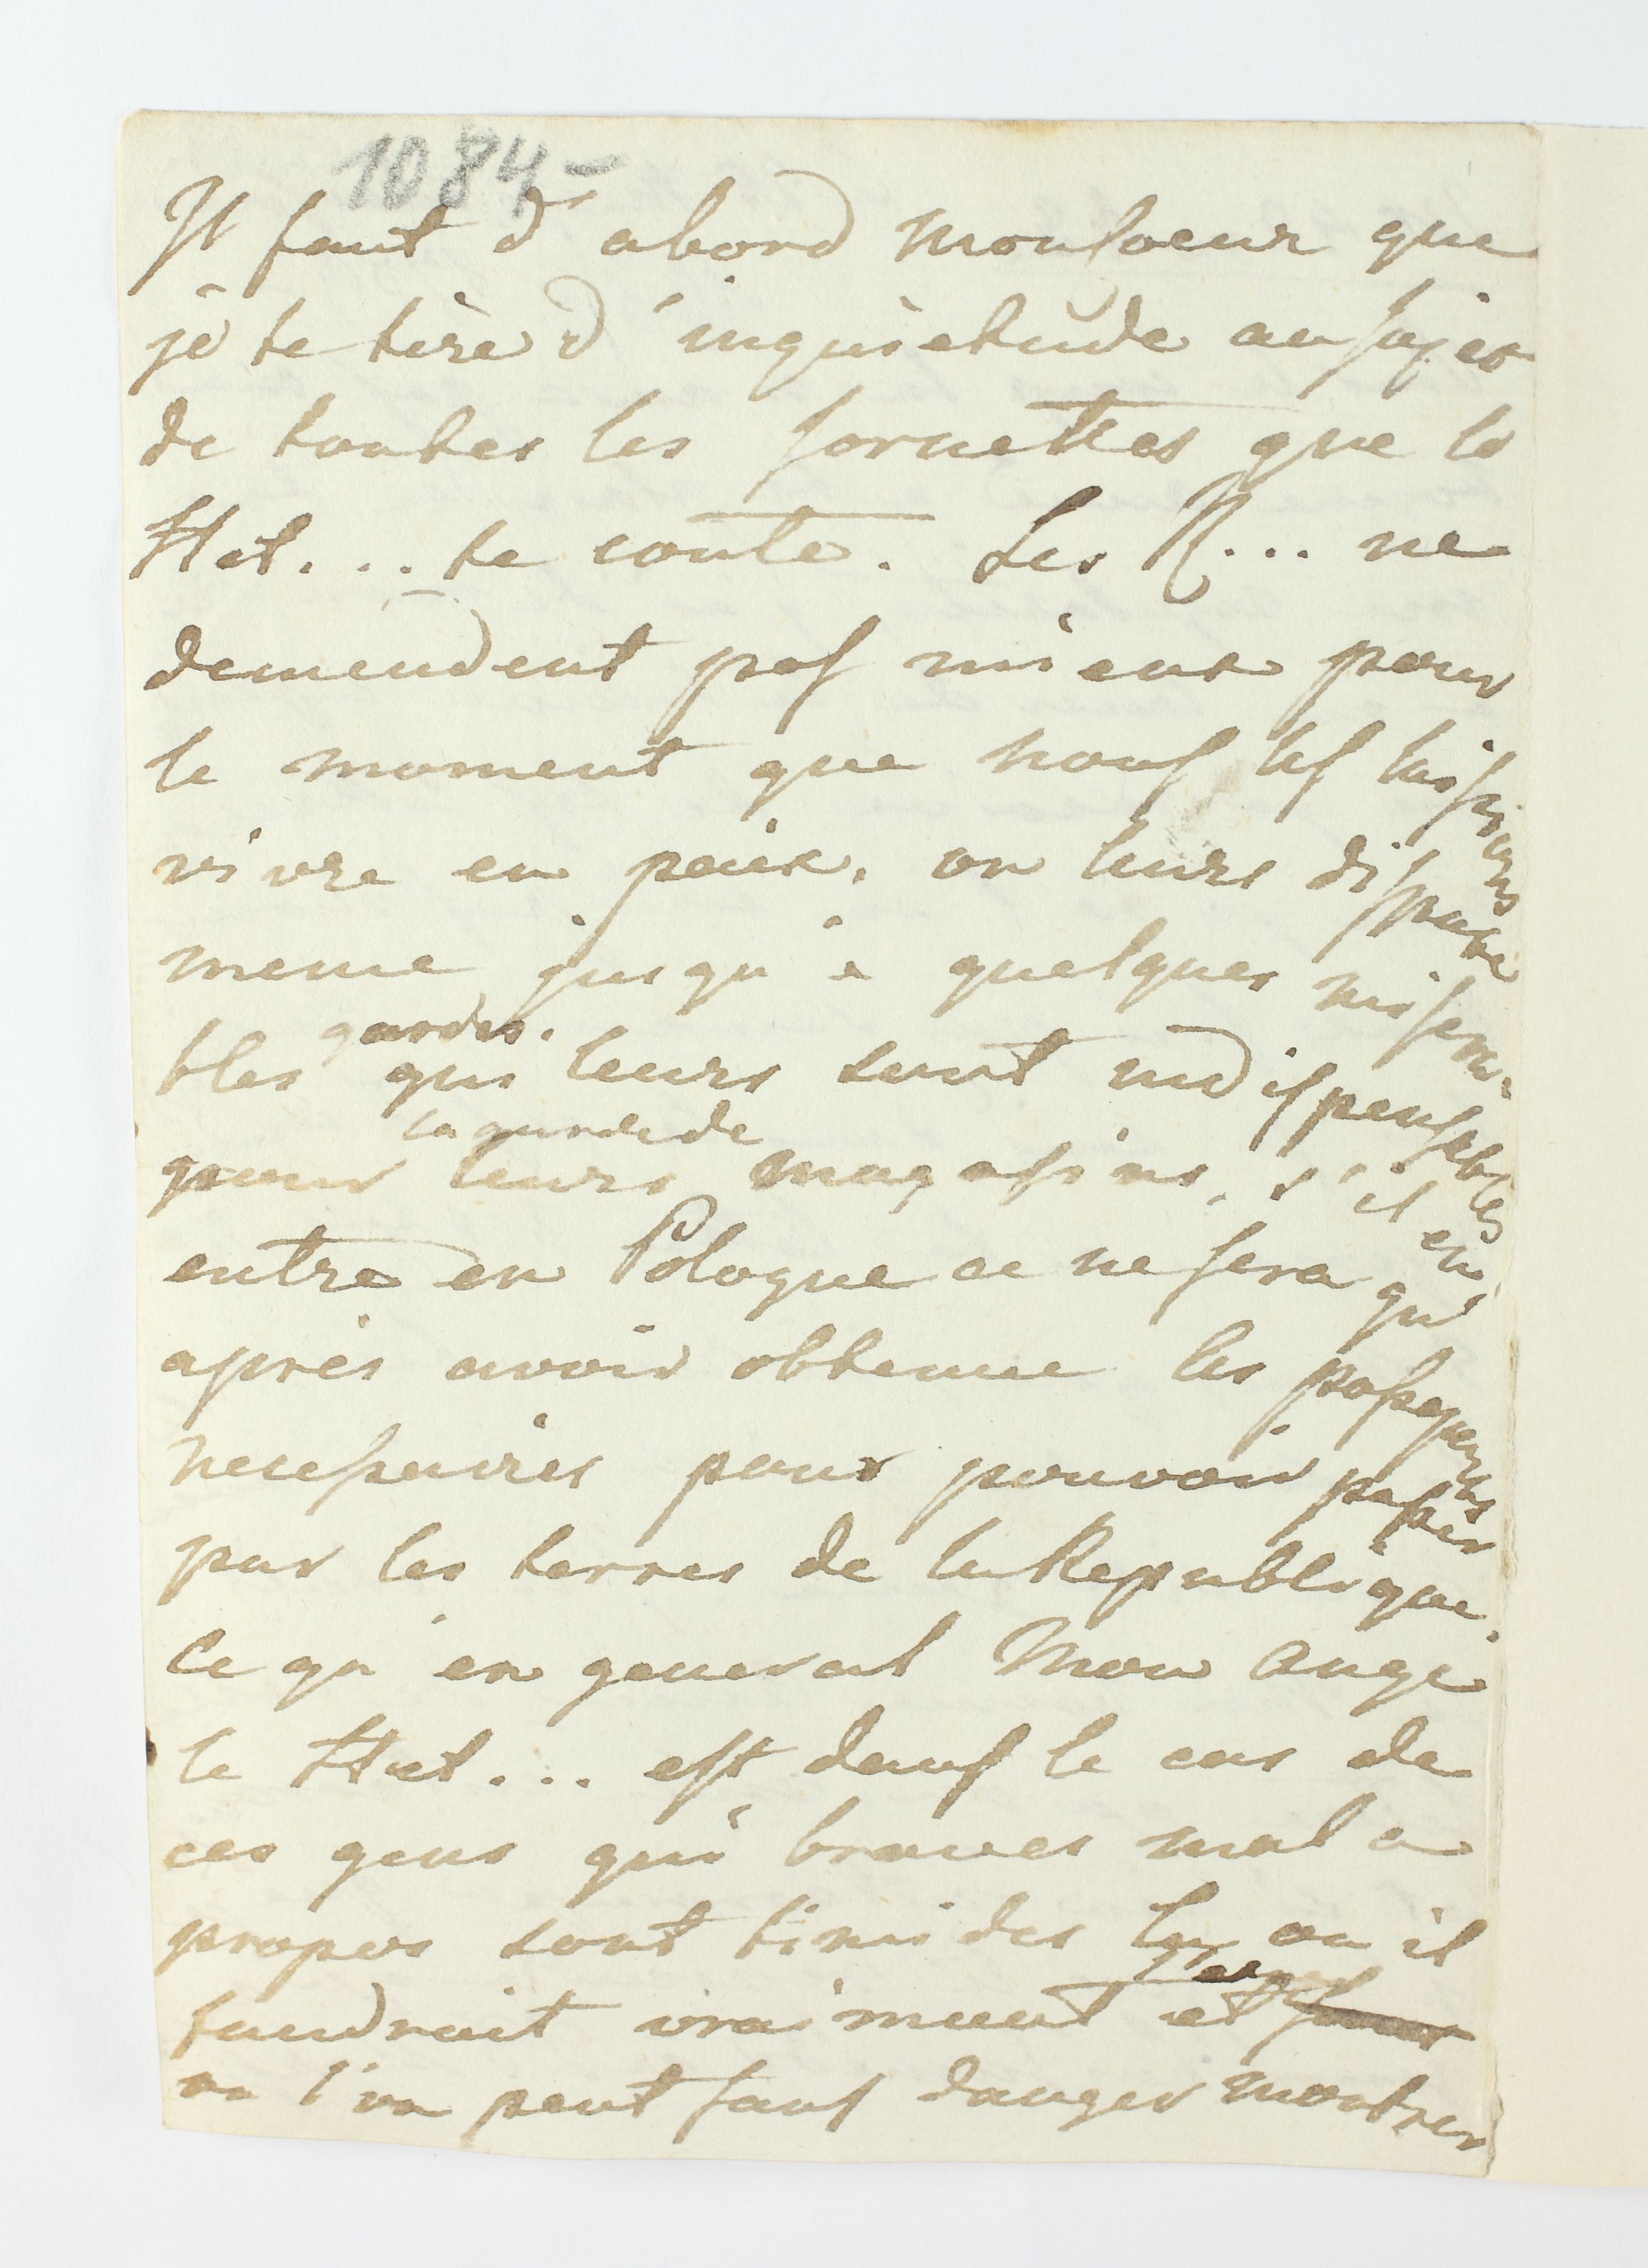 1084-
Il faut d'abord monsoeur que
je te tire d'inquietude au sujet
de toutes les sornettes que le
Het... te conte. Les R... ne
demendent pas mieux pour
le moment que nous les laissions
vivre en paix. on leurs dispute
meme jusqu'à quelques misera-
bles gardes.
qui leurs sont indispensables
la garde de
pour leurs magasins, s'il en
entre en Pologne ce ne sera qu'
après avoir obtenue les passeports
necessaires pour pouvoir passer
par les terres de la Republique.
Ce qu'en general Mon Ange
le Het... est dans le cas de
ces gens qui braves mal a
propos sont timides la ou il
faudroit vraiment et
ou l'on peut sans danger montrer